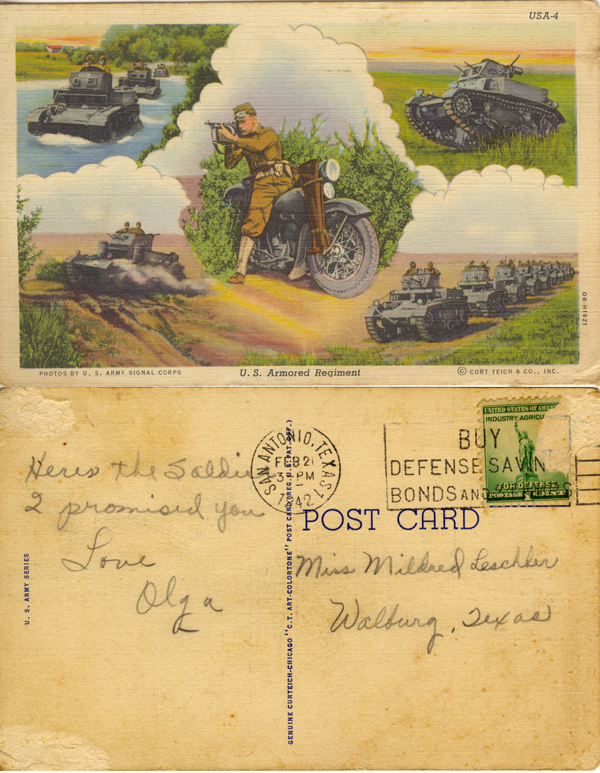 USA-4
OB-H1821
PHOTOS BY U. S. ARMY SIGNAL CORPS
U. S. Armored Regiment
© CURT TEICH & CO., INC.
Heres the Soldier
I promised you
Love
Olga
U. S. ARMY SERIES
GENUINE CURTEICH-CHICAGO "C.T. ART-COLORTONE" POST CARD (REG. U. S. PAT. OFF.)
SAN ANTONIO, TEXAS 1
FEB 2
3 PM
1942
BUY
DEFENSE SAVIN
BONDS AND
UNITED STATES OF AMER
INDUSTRY AGRICUL
FOR DEFENSE
POST CARD
Miss Mildred Leschber
Walburg, Texas